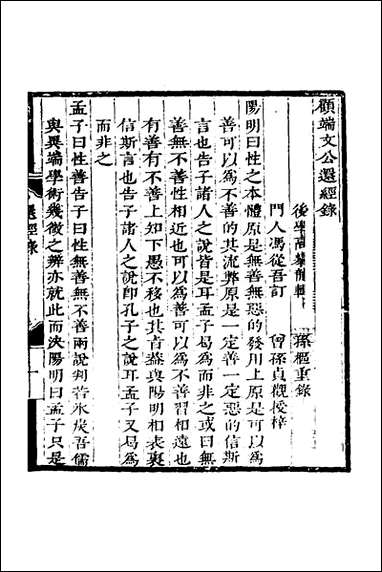 顧端文公還經錄
後學高攀龍輯　孫樞重錄
門人馮從吾訂　曾孫貞觀授梓
陽明曰性之本體原是無善無惡的發用上原是可以爲
善可以爲不善的其流弊原是一定善一定惡的信斯
言也告子諸人之說皆是耳孟子曷爲而非之或曰無
善無不善性相近也可以爲善可以爲不善習相遠也
有善有不善上知下愚不移也其旨葢與陽明相表裏
信斯言也告子諸人之說卽孔子之說耳孟子又曷爲
而非之
孟子曰性善告子曰性無善無不善兩說判若氷炭吾儒
與異端學術幾微之辨亦就此而決陽明曰孟子只是
還經錄
一